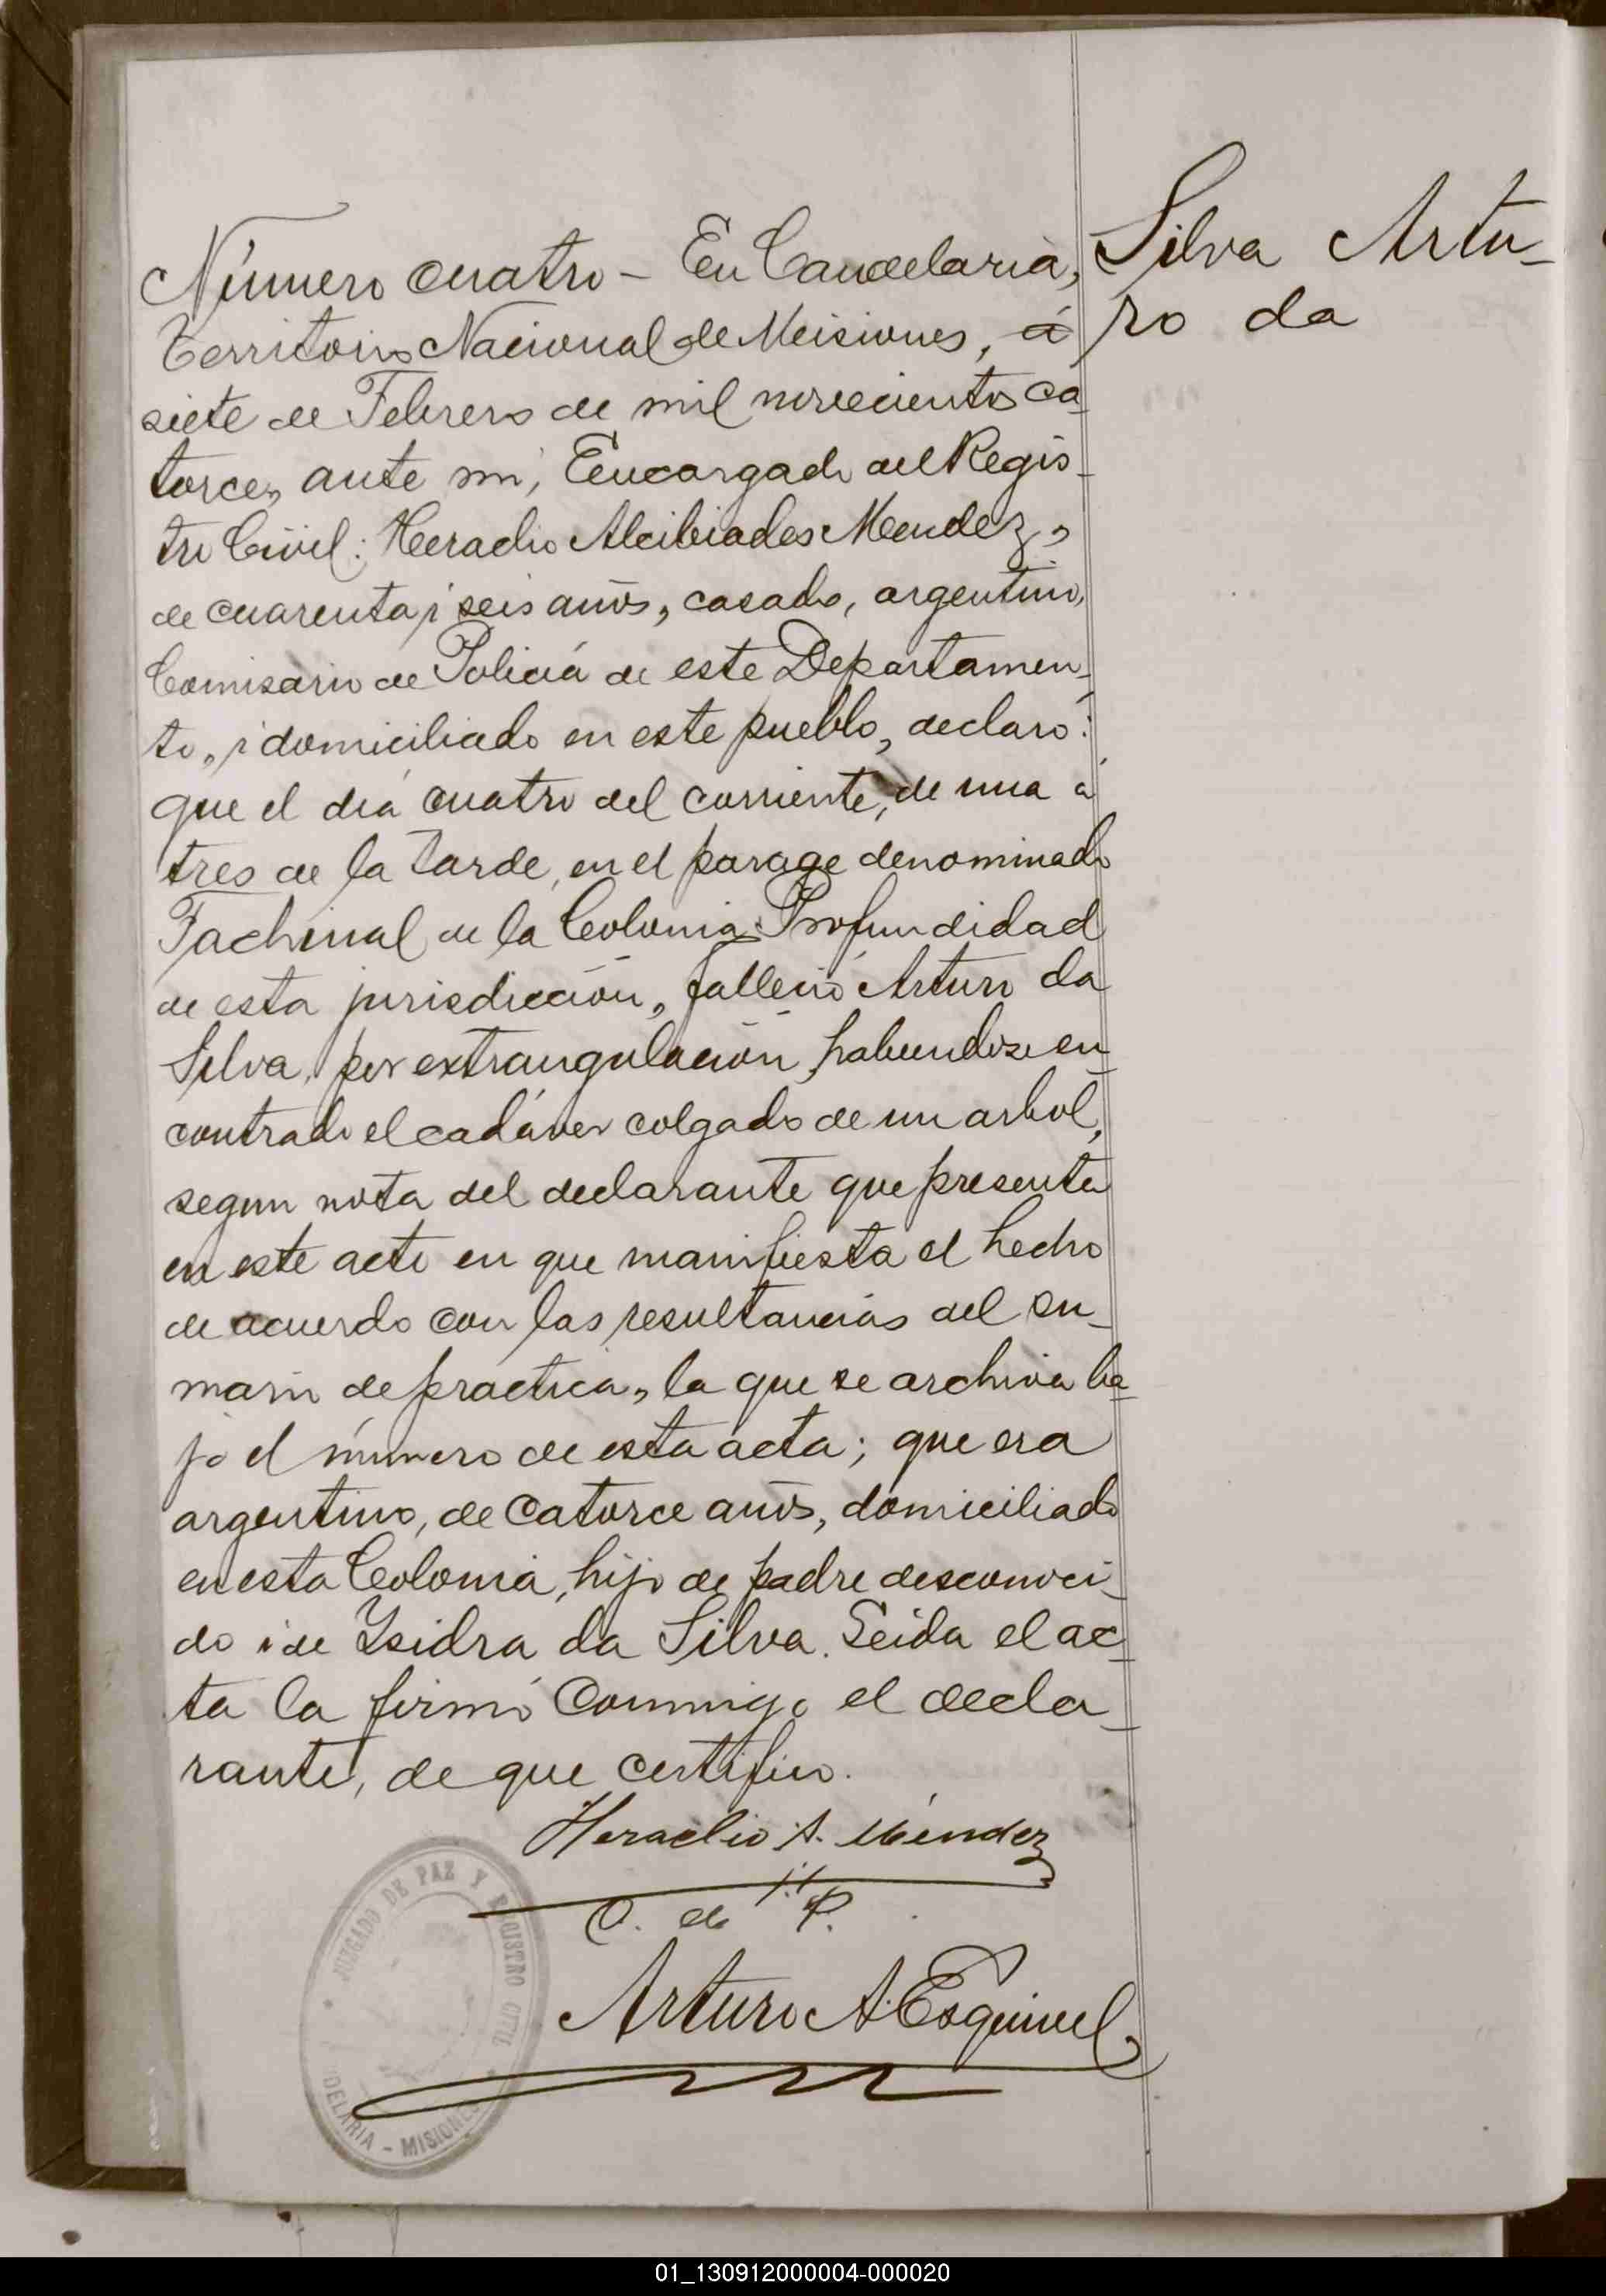 Silva Artu-
ro da
Número cuatro - En Candelaria,
Territorio Nacional de Misiones, á
siete de Febrero de mil novecientos ca-
torce, ante mi, Encargado del Regis-
tro Civil: Heraclio Alcibiades Mendez,
de cuarenta i seis años, casado, argentino,
Comisario de Policia de este Departamen-
to, i domiciliado en este pueblo, declaró:
que el día cuatro del corriente, de una á
tres de la tarde, en el parage denominado
Fachinal de la Colonia Profundidad
de esta jurisdicción, falleció Arturo da
Silva, por extrangulación, habiendose en-
contrado el cadáver colgado de un arbol,
segun nota del declarante que presenta
en este acto en que manifiesta el hecho
de acuerdo con las resultancias del su-
mario de practica, la que se archiva ba-
jo el número de esta acta; que era
argentino, de catorce años, domiciliado
en esta Colonia, hijo de padre desconoci-
do i de Ysidra da Silva. Leida el ac-
ta la firmó conmigo el decla-
rante, de que certifico.
Heraclio A. Méndez
C. de P.
Arturo A. Esquivel
JUZGADO DE PAZ Y REGISTRO CIVIL
DELARIA - MISIONES
01_130912000004-000020